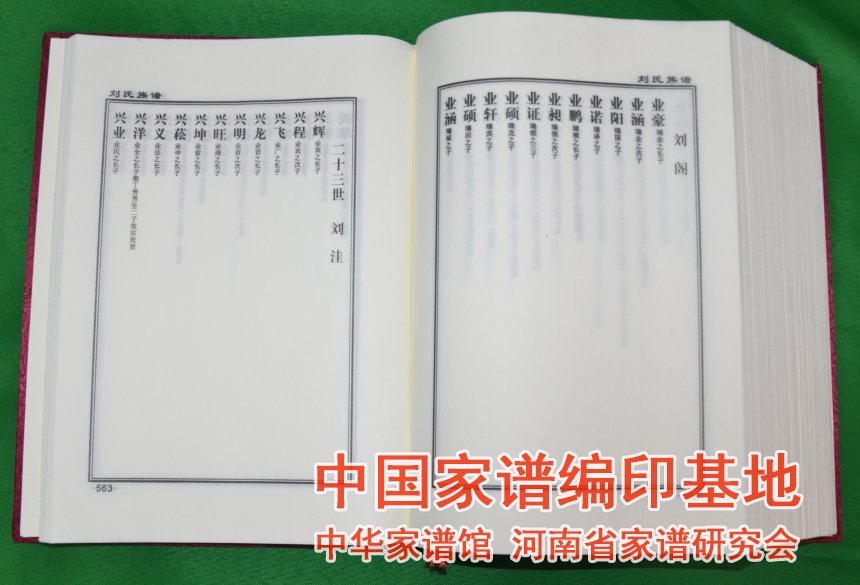 刘氏族谱
刘阁
业豪 瑞金之长子
业涵 瑞金之次子
业阳 瑞国之子
业诺 瑞译之子
业鹏 瑞银之长子
业昶 瑞银之次子
业证 瑞银之三子
业硕 瑞龙之子
业轩 瑞宾之子
业硕 瑞田之子
业涵 瑞诚之子
刘氏族谱
二十三世 刘洼
兴辉 业宾之长子
兴程 业宾之次子
兴飞 业广之长子
兴龙 业君之长子
兴明 业君之次子
兴旺 业涛之子
兴坤 业俊之子
兴菘 业申之子
兴义 业法之长子
兴洋 业全之长子娶丁芳芳生二子效宗效贤
兴业 业民之长子
-563-
中国家谱编印基地
中华家谱馆 河南省家谱研究会